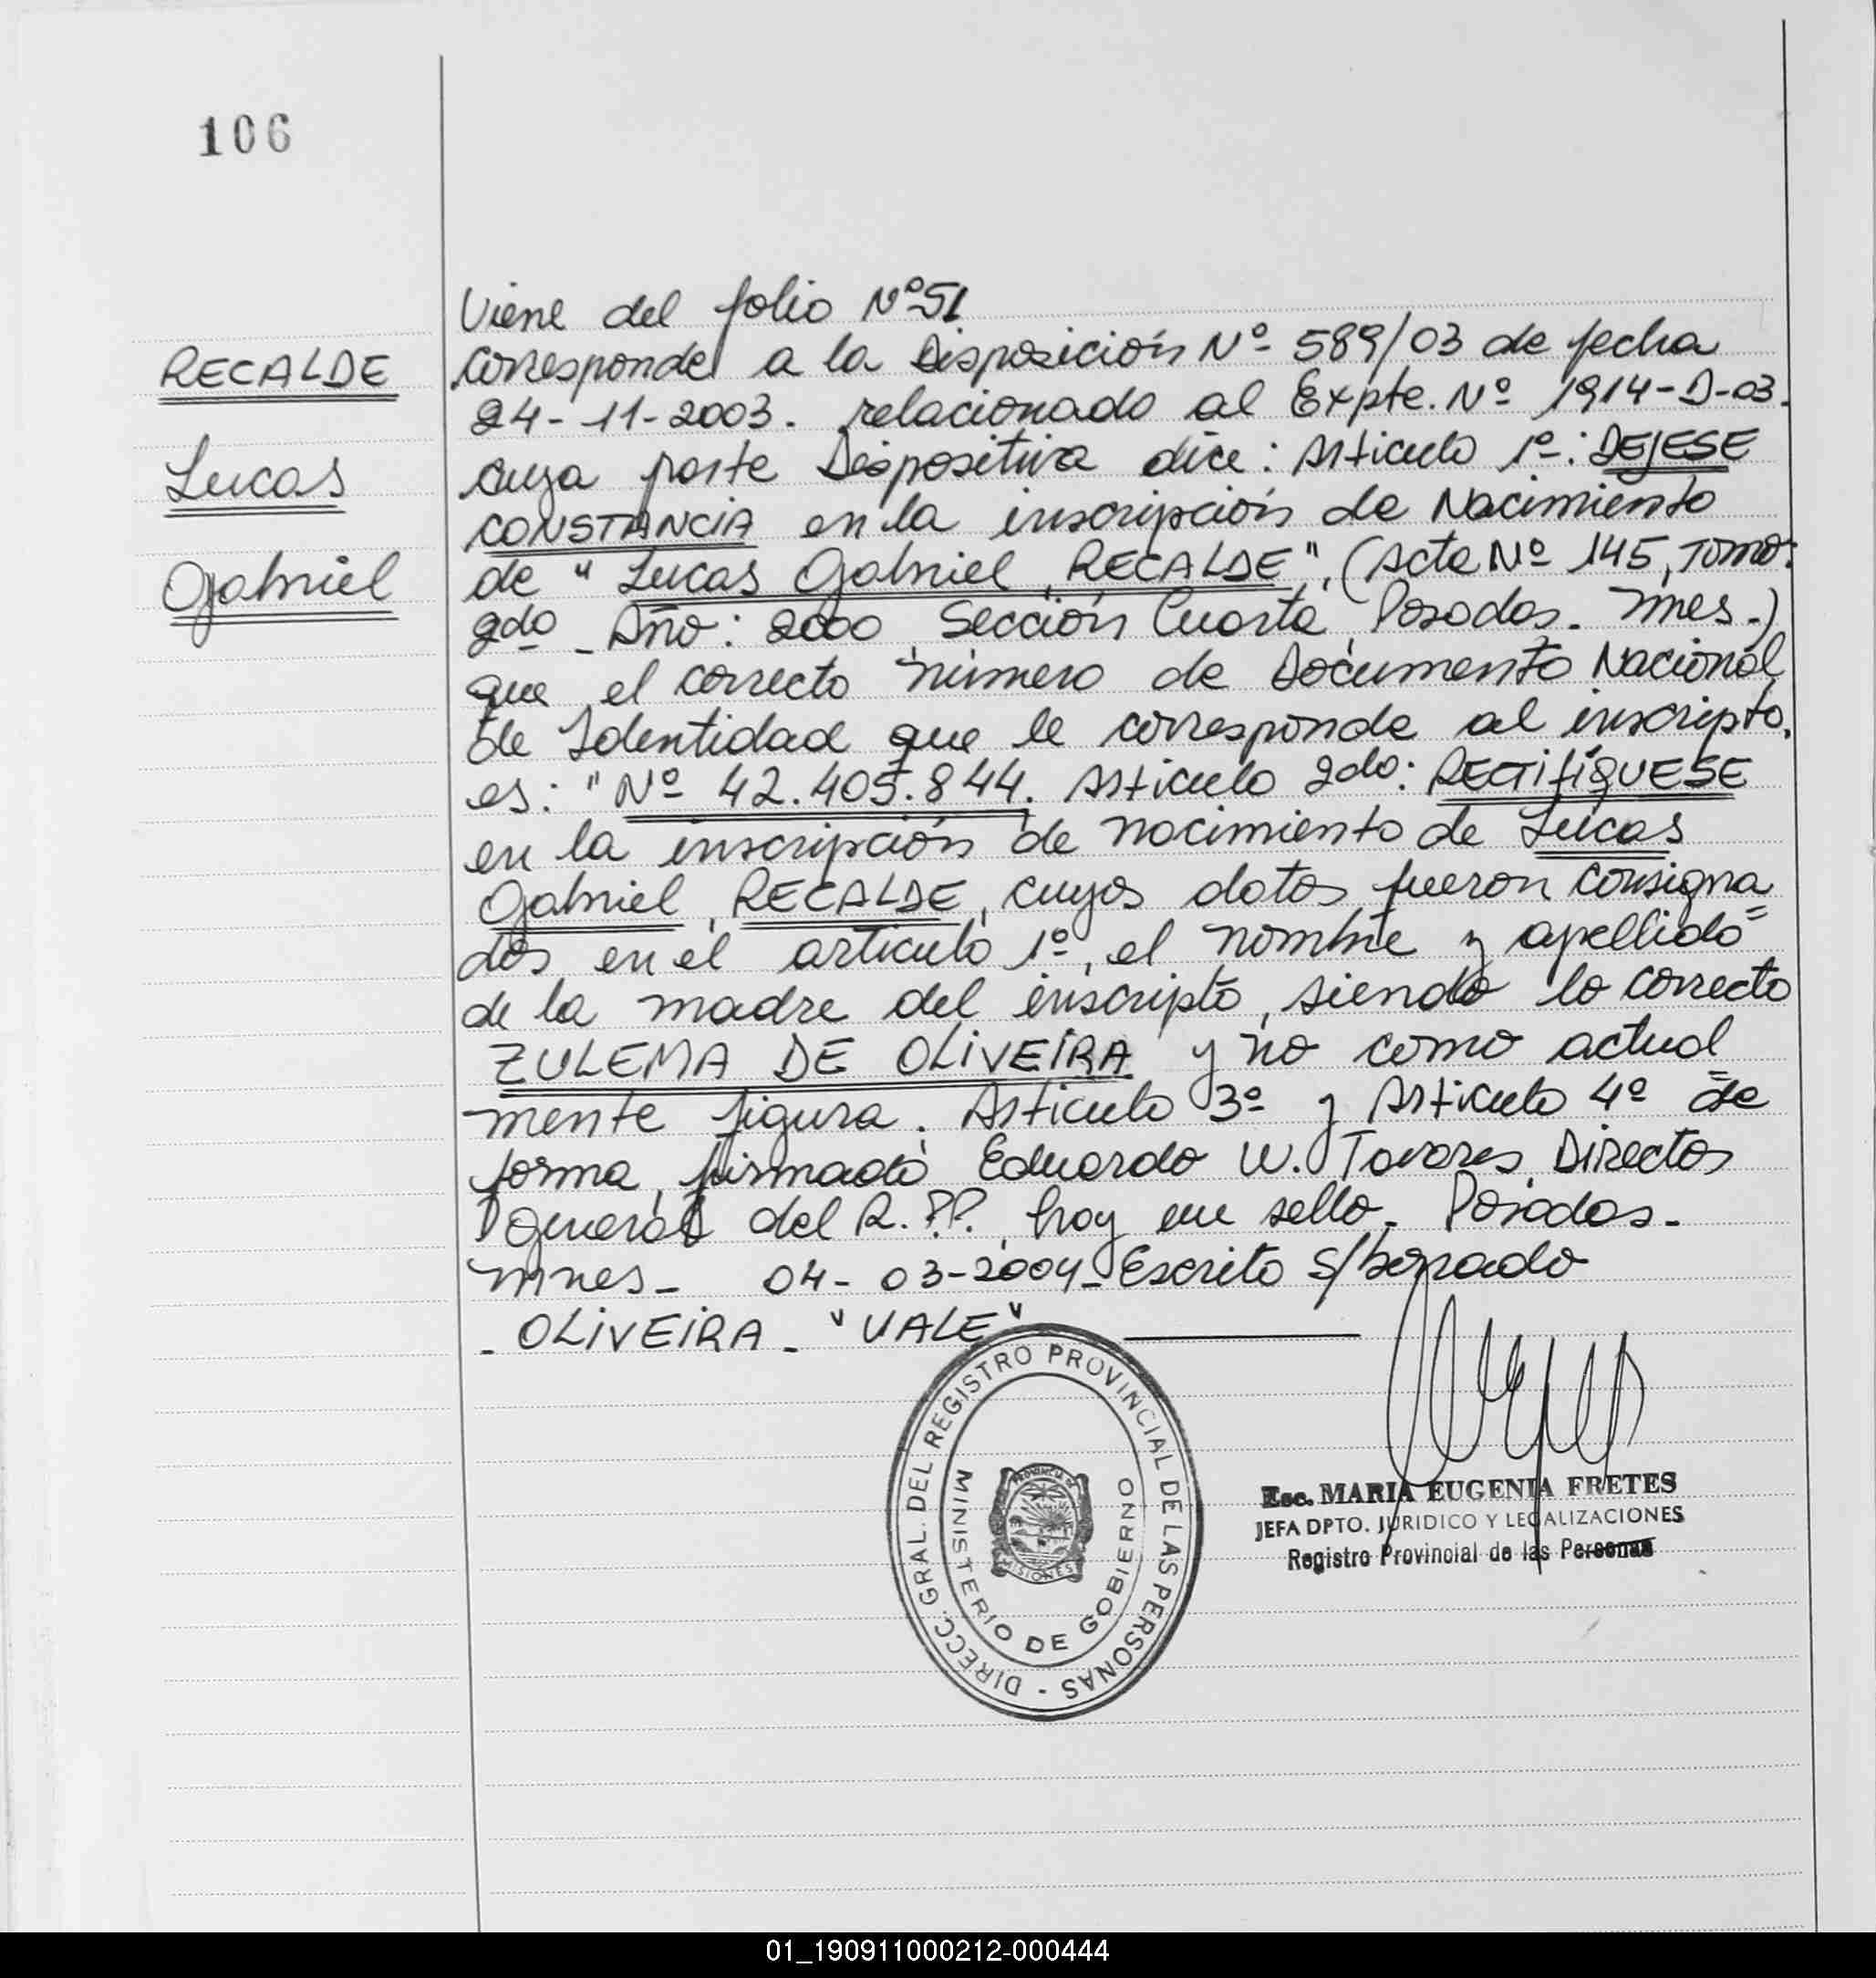 106
Viene del folio Nº 51
RECALDE
Lucas
Gabriel
corresponde a la Disposición Nº 589/03 de fecha
24-11-2003. relacionado al Expte. Nº 1914-D-03.
cuya parte Dispositiva dice: Articulo 1º: DEJESE
CONSTANCIA en la inscripción de Nacimiento
de "Lucas Gabriel, RECALDE", (Acta Nº 145, Tomo:
2do - Año: 2000 Sección Cuarta, Posadas. Mnes.)
que el correcto número de Documento Nacional
de Identidad que le corresponde al inscripto,
es: "Nº 42.405.844. Articulo 2do: RECTIFIQUESE
en la inscripción de nacimiento de Lucas
Gabriel, RECALDE, cuyos datos fueron consigna=
dos en el articulo 1º, el nombre y apellido
de la madre del inscripto, siendo lo correcto
ZULEMA DE OLIVEIRA y no como actual=
mente figura. Articulo 3º y Articulo 4º de
forma, firmado Eduardo W. Tavares, Director
general del R.P.P. hay un sello. Posadas-
Mnes- 04-03-2004- Escrito s/borrado
- OLIVEIRA - "VALE"
DIRECC. GRAL. DEL REGISTRO PROVINCIAL DE LAS PERSONAS -
MINISTERIO DE GOBIERNO
PROVINCIA DE
MISIONES
Esc. MARIA EUGENIA FRETES
JEFA DPTO. JURIDICO Y LEGALIZACIONES
Registro Provincial de las Personas
01_190911000212-000444